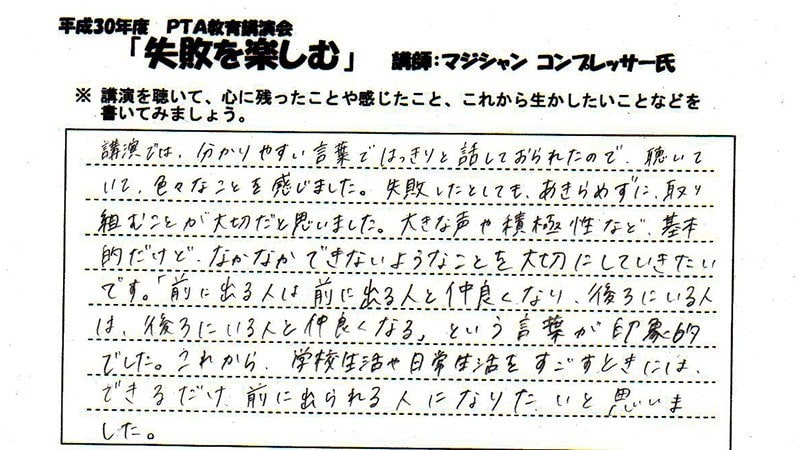 平成30年度 PTA教育講演会
「失敗を楽しむ」 講師：マジシャン コンプレッサー氏
※ 講演を聴いて、心に残ったことや感じたこと、これから生かしたいことなどを
書いてみましょう。
講演では、分かりやすい言葉ではっきりと話しておられたので、聴いて
いて、色々なことを感じました。失敗したとしても、あきらめずに、取り
組むことが大切だと思いました。大きな声や積極性など、基本
的だけど、なかなかできないようなことを大切にしていきたい
です。「前に出る人は前に出る人と仲良くなり、後ろにいる人
は、後ろにいる人と仲良くなる」という言葉が印象的
でした。これから、学校生活や日常生活をすごすときには、
できるだけ前に出られる人になりたいと思いま
した。